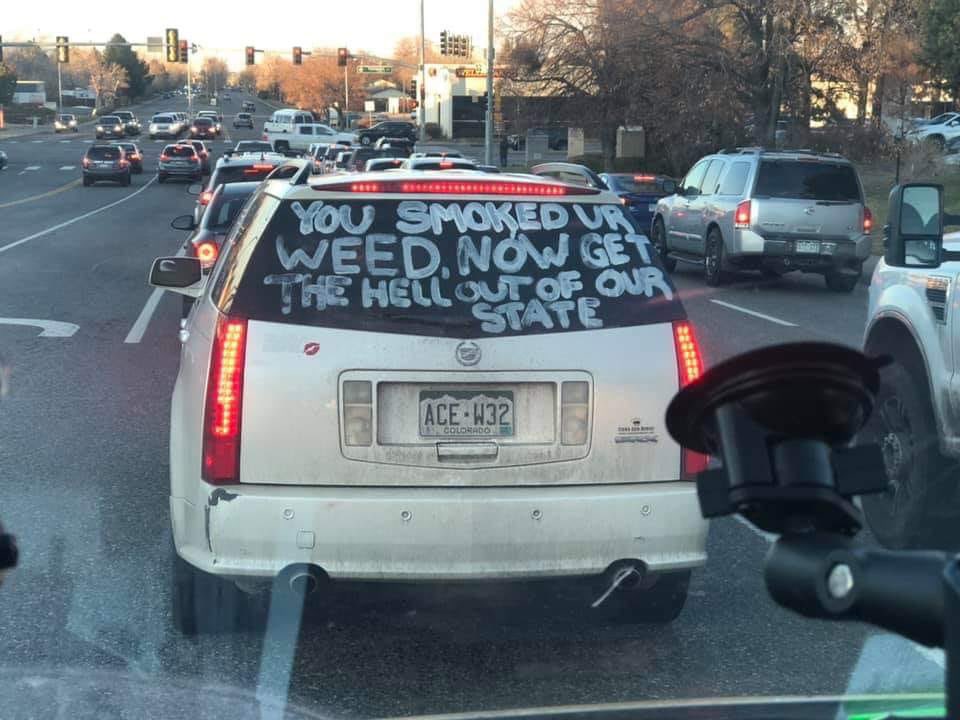 YOU SMOKED UR
WEED, NOW GET
THE HELL OUT OF OUR
STATE
ACE-W32
COLORADO